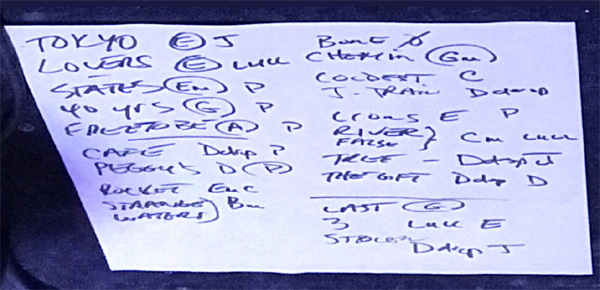 TOKYO (E) J
LOVERS (E) LULL
STATES (Em) P
40 YRS (G) P
FREE TO BE (A) P
CAPE Ddrop P
PEGGY'S D (P)
ROCKET Em C
STRANGE
WATERS } Bm
BONE
(Gm)
COLDEST C
J-TRAIN Ddrop D
LIONS E P
RIVER
FALSE } Cm LULL
TREE - Ddrop J
THE GIFT Ddrop D
LAST (G)
3 LULL E
STOLEN
Ddrop J